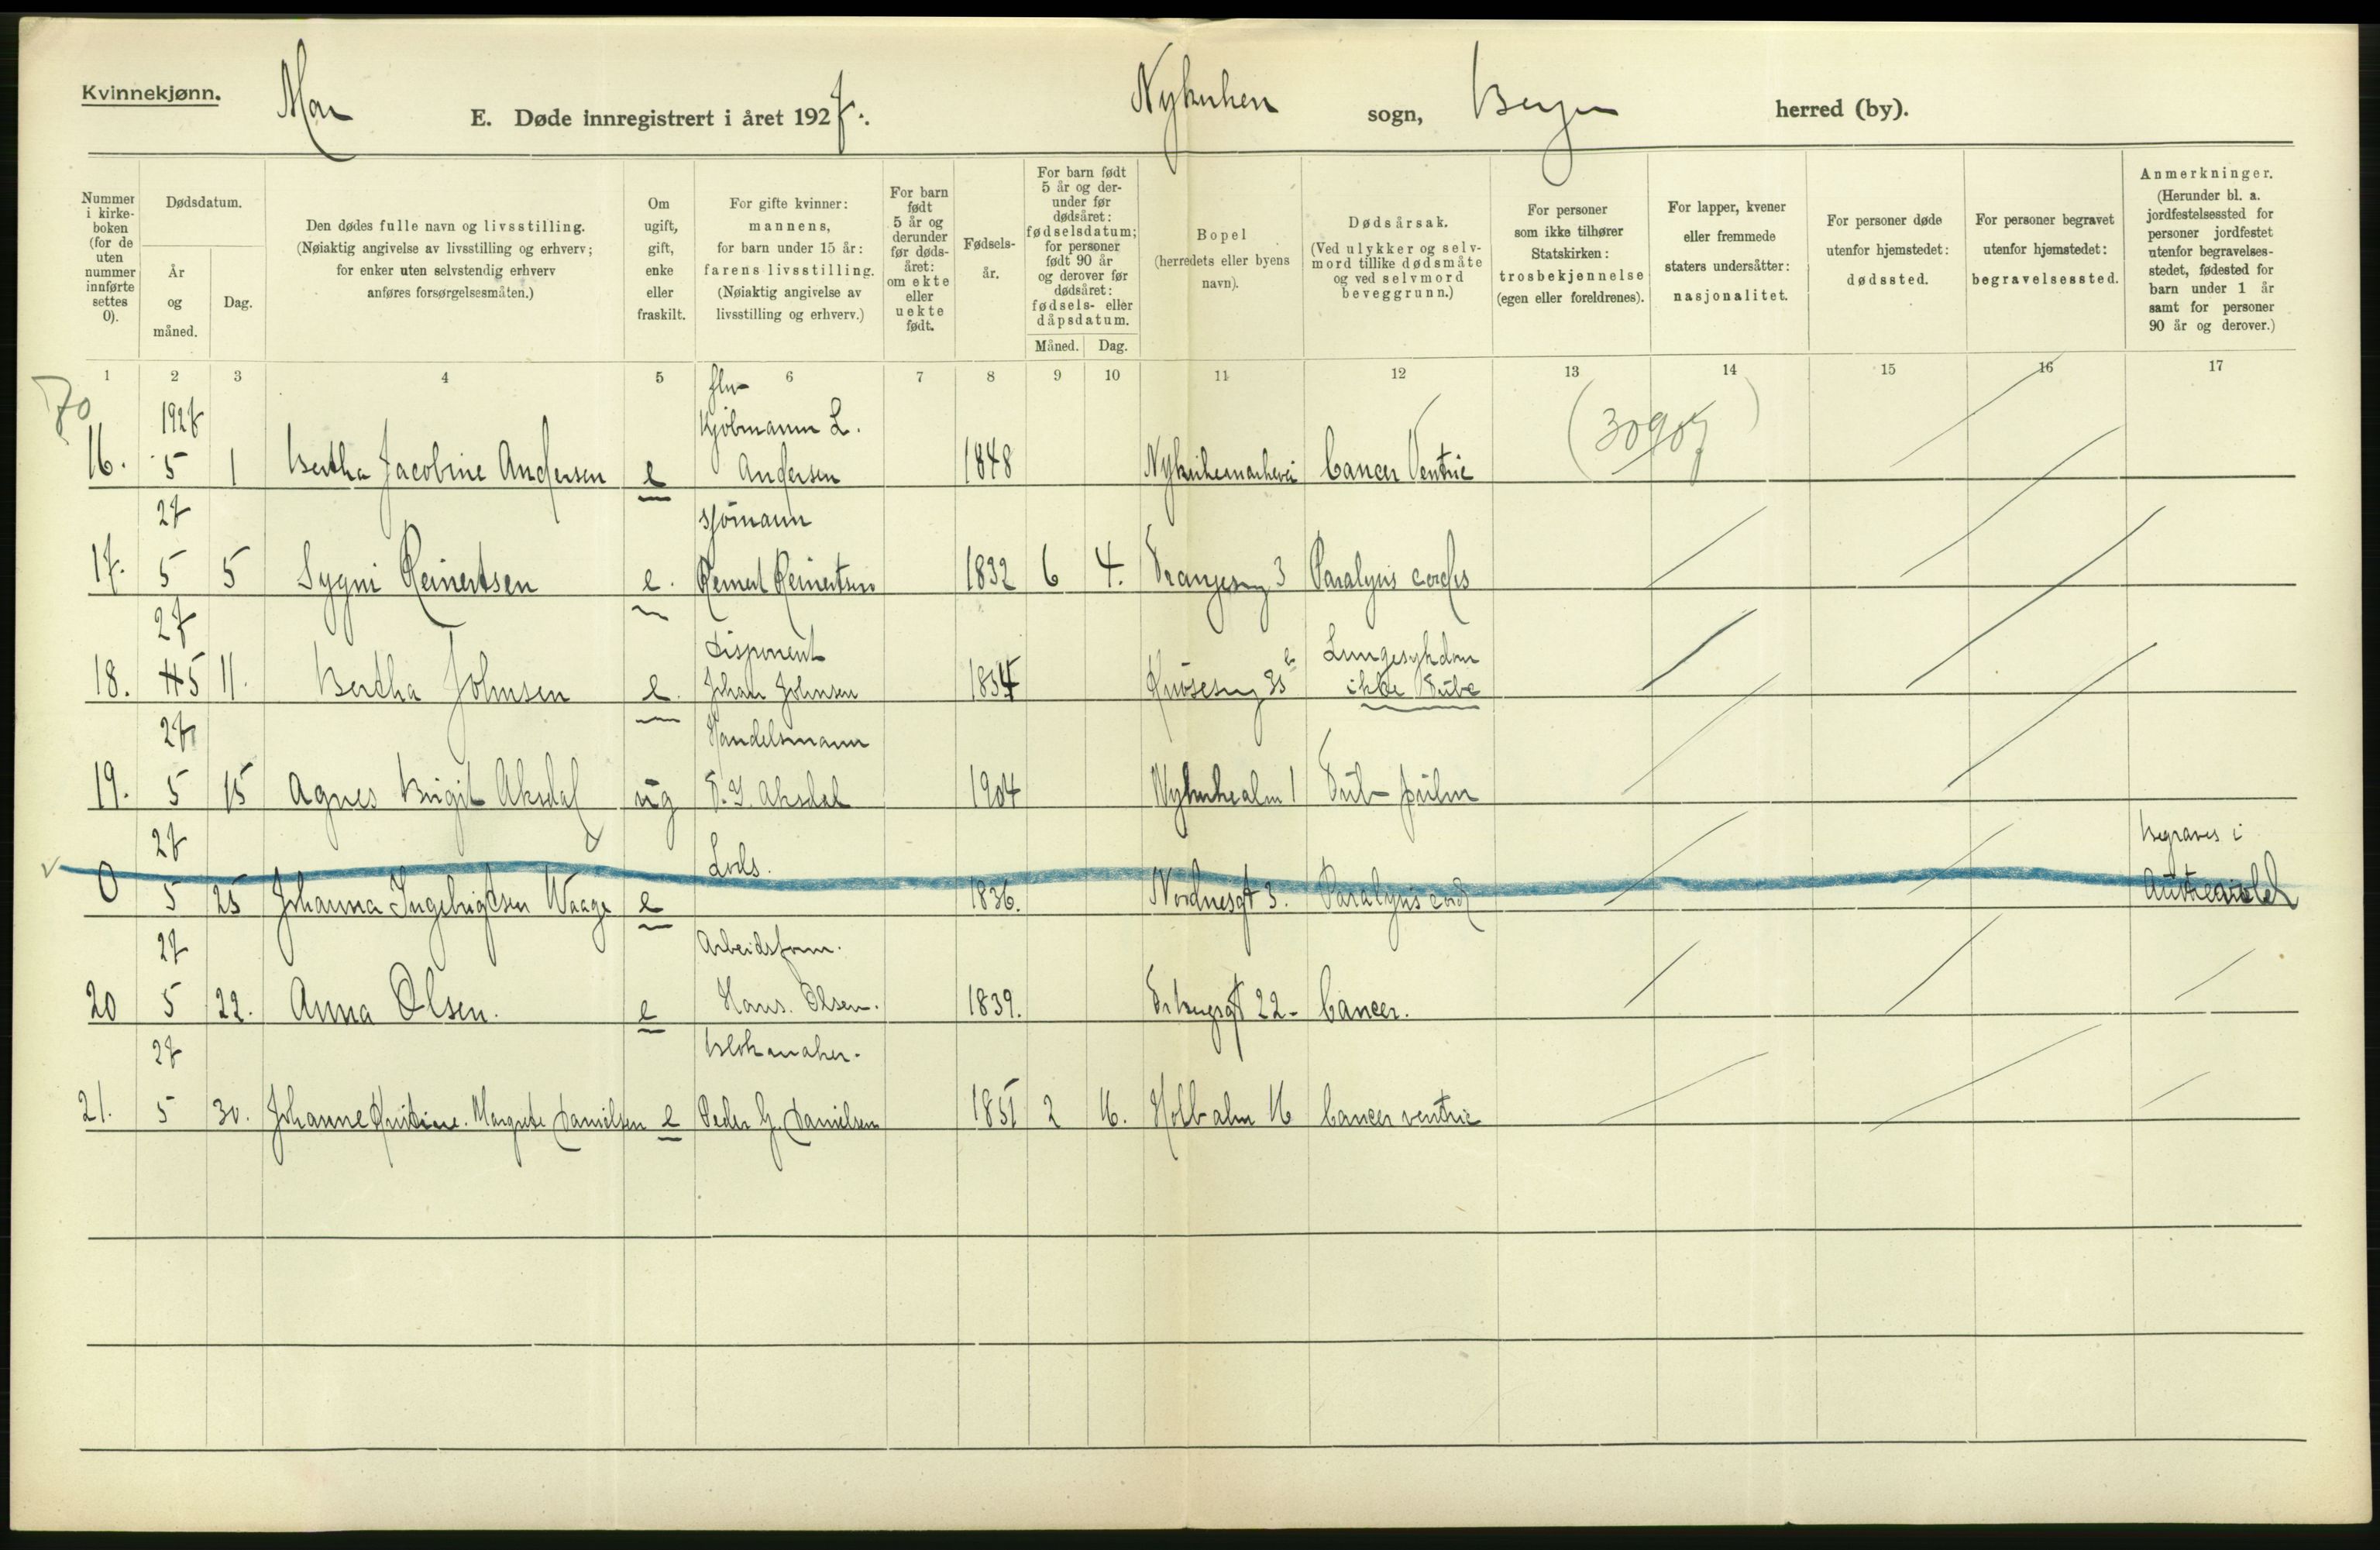 Kvinnekjønn.
Mai
E. Døde innregistrert i året 1927.
Nykirken sogn, Bergen herred (by).
Nummer i kirke-boken (for de uten nummer innførte settes 0).
Dødsdatum.
År og måned.
Dag.
Den dødes fulle navn og livsstilling.
(Nøiaktig angivelse av livsstilling og erhverv;
for enker uten selvstendig erhverv
anføres forsørgelsesmåten.)
Om ugift, gift, enke eller fraskilt.
For gifte kvinner:
mannens,
for barn under 15 år:
farens livsstilling.
(Nøiaktig angivelse av
livsstilling og erhverv.)
For barn født 5 år og derunder før døds-året: om ekte eller uekte født.
Fødsels-år.
For barn født 5 år og der-under før dødsåret: fødselsdatum; for personer født 90 år og derover før dødsåret: fødsels- eller dåpsdatum.
Måned. Dag.
Bopel
(herredets eller byens
navn).
Dødsårsak.
(Ved ulykker og selv-
mord tillike dødsmåte
og ved selvmord
beveggrunn.)
For personer
som ikke tilhører
Statskirken:
trosbekjennelse
(egen eller foreldrenes).
For lapper, kvener
eller fremmede
staters undersåtter:
nasjonalitet.
For personer døde
utenfor hjemstedet:
dødssted.
For personer begravet
utenfor hjemstedet:
begravelsessted.
Anmerkninger.
(Herunder bl. a.
jordfestelsessted for
personer jordfestet
utenfor begravelses-
stedet, fødested for
barn under 1 år
samt for personer
90 år og derover.)
1 2 3 4 5 6 7 8 9 10 11 12 13 14 15 16 17
70
1927 Kjøbmann L.
16. 5 1 Bertha Jacobine Andersen e Andersen 1848 Cancer Ventric
(30907)
27 Sjømann
17. 5 5 Sygni Reinertsen e. Reinert Reinertsen 1832 6 4. 3 Paralysis cordis
27 Disponent Lungesykdom
18. 5 11. Bertha Johnsen e. Johan Johnsen 1854 ikke Tube
27 Handelsmann
19. 5 15 Agnes Birgit Aksdal ug Aksdal 1904 Nykirkealm 1 Tub pulm
27 Lods. Begraves i
0 5 25 Johanna Ingebrigtsen Waage e 1836. Nordnesgt 3. Paralysis cord
27 Arbeidsform.
20 5 22. Anna Olsen. e Hans. Olsen. 1839. 22- Cancer.
27 Blokmaker.
21. 5 30. Johanne Kristine. Margrete Danielsen e Peder G. Danielsen 1851 2 16. Holbalm 16 Cancer ventric